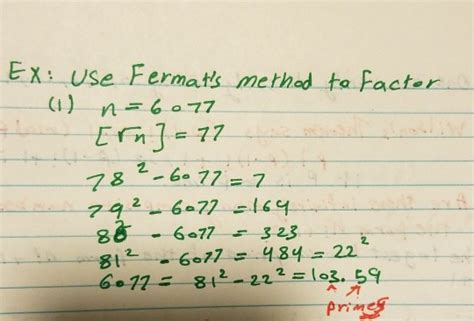 Ex: Use Fermat's method to factor
(1) n = 6077
[√n] = 77
78² - 6077 = 7
79² - 6077 = 164
80² - 6077 = 323
81² - 6077 = 484 = 22²
6077 = 81² - 22² = 103 . 59
primes